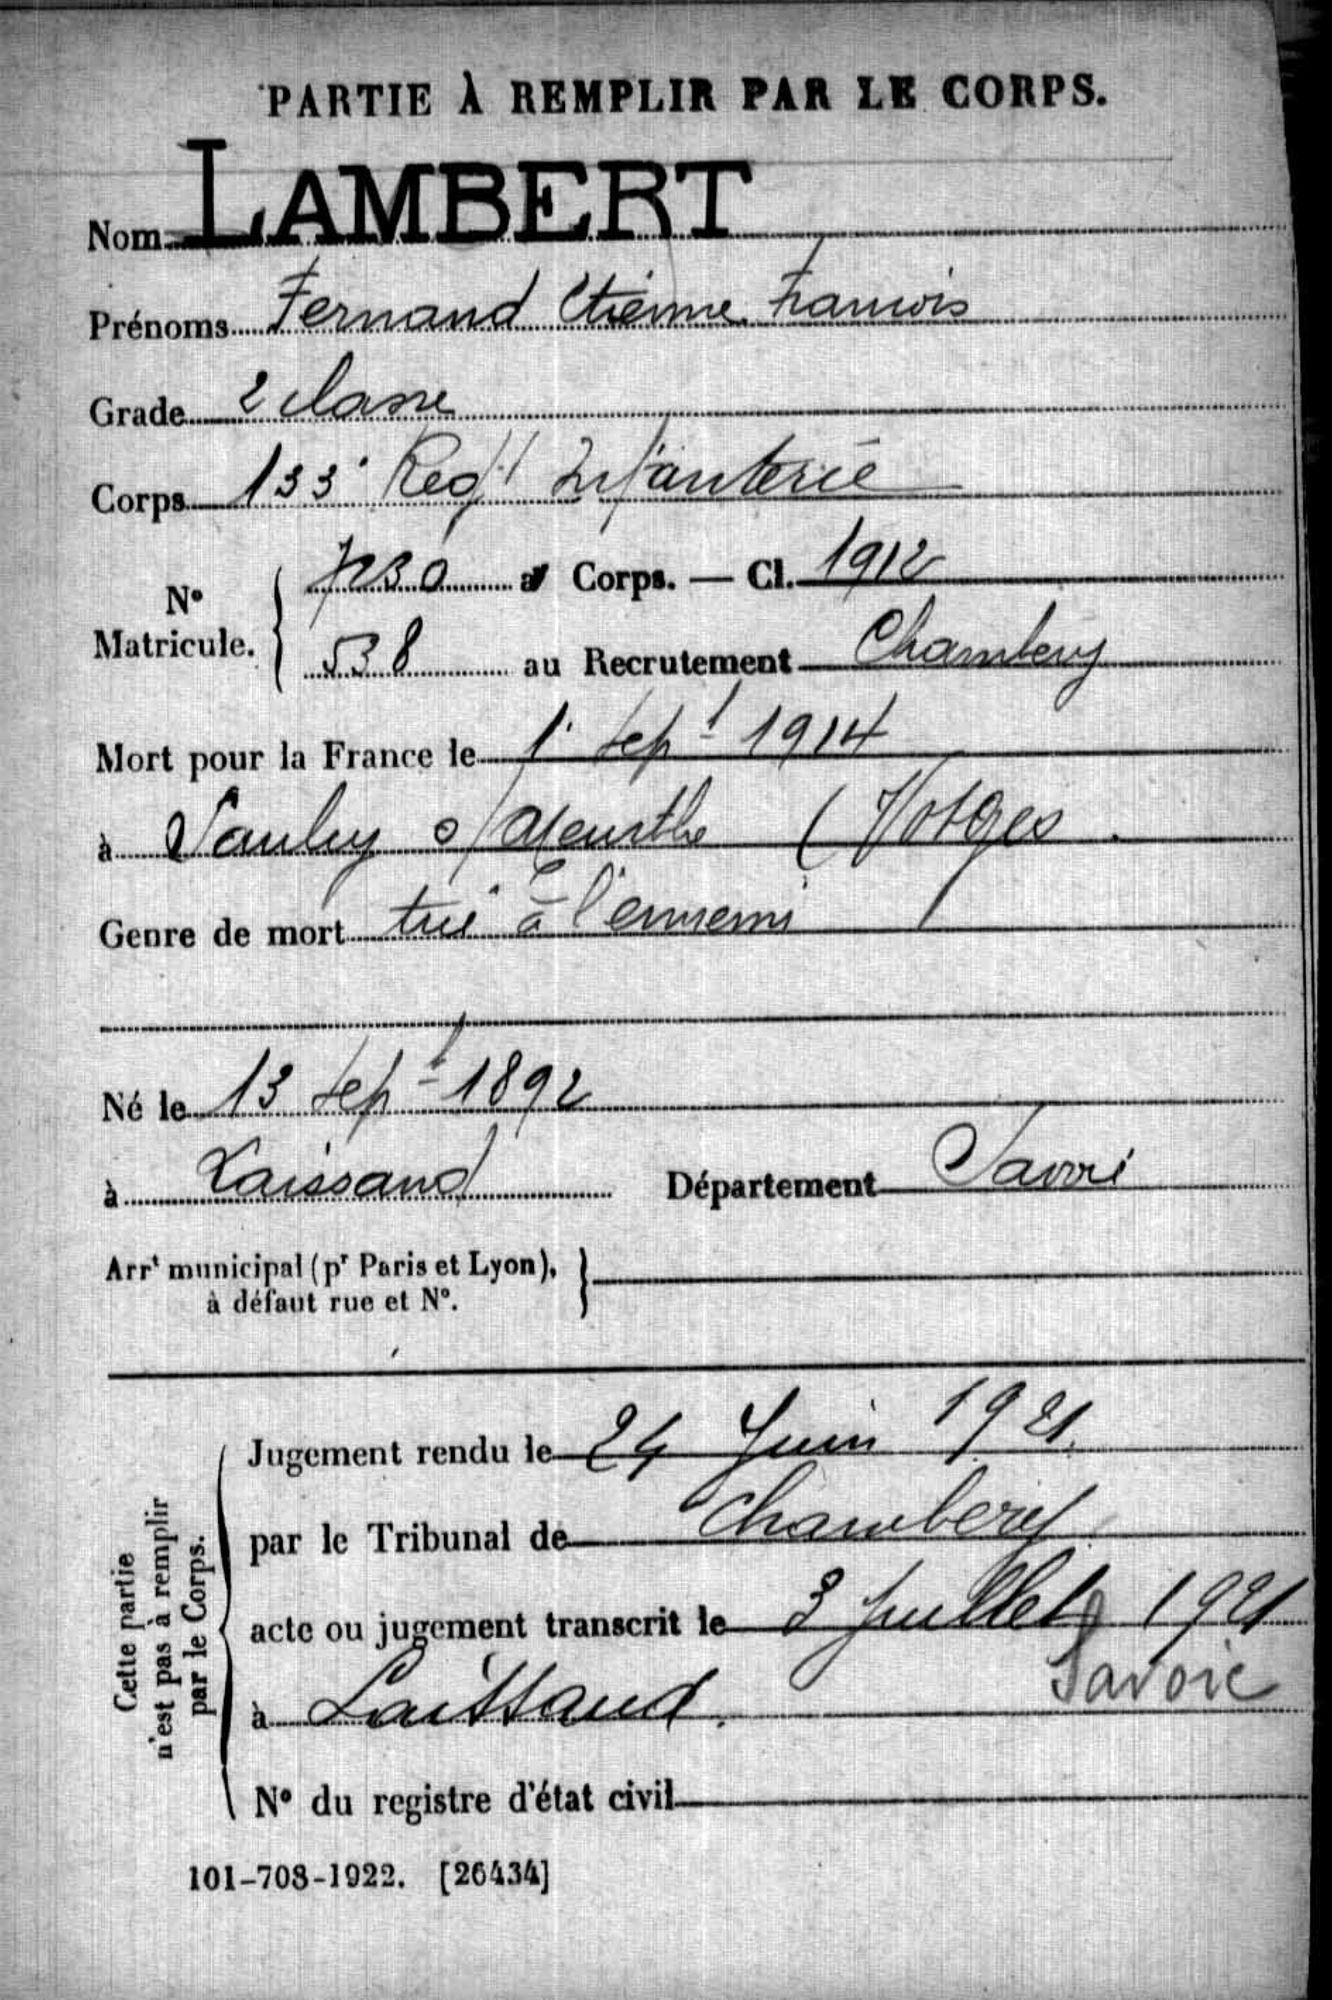 PARTIE À REMPLIR PAR LE CORPS.
Nom LAMBERT
Prénoms Fernand Etienne François
Grade 2 classe
Corps 133e Regt Infanterie
N° Matricule. { 7230 au Corps. — Cl. 1912
538 au Recrutement Chambery
Mort pour la France le 1er Sept 1914
à Saulcy s/ Meurthe (Vosges
Genre de mort tué à l'ennemi
Né le 13 Sept 1892
à Laissaud Département Savoie
Arrt municipal (pr Paris et Lyon), }
à défaut rue et N°.
Cette partie
n'est pas à remplir
par le Corps.
Jugement rendu le 24 Juin 1921
par le Tribunal de Chambery
acte ou jugement transcrit le 3 Juillet 1921
à Laissaud. Savoie
N° du registre d'état civil
101-708-1922. [26434]